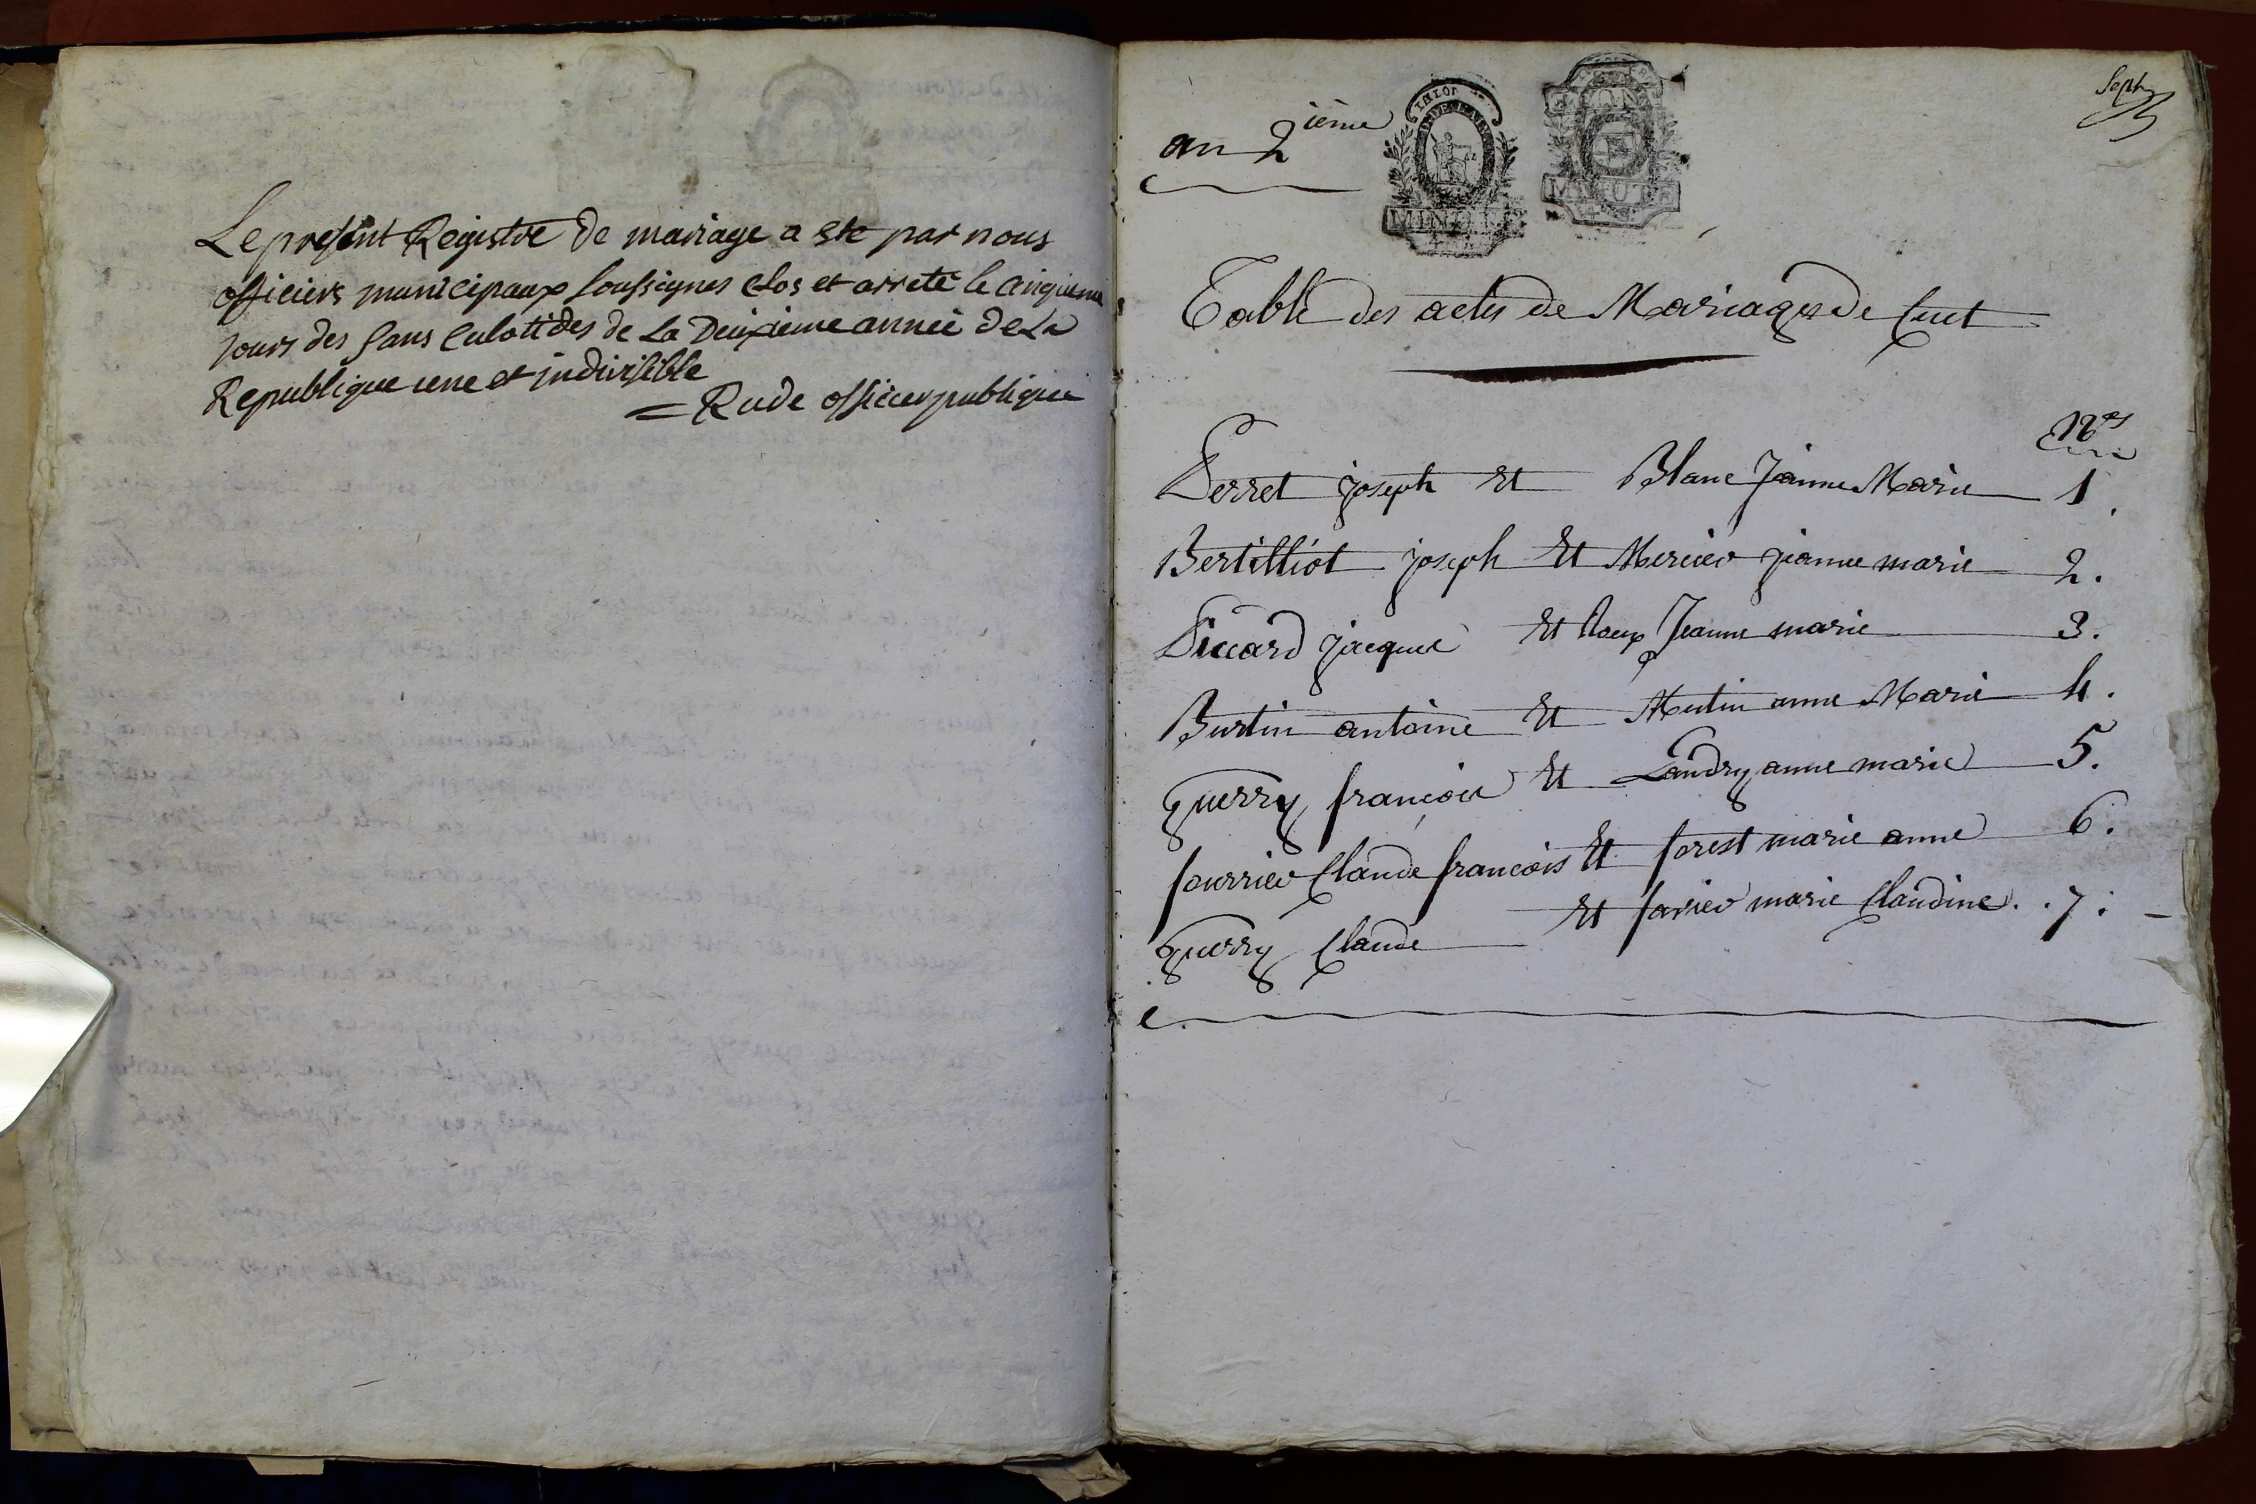 Le present Registre de mariage a ete par nous
officiers municipaux soussignes clos et arreté le cinquieme
jours des sans culotides de la Deuxieme année de La
Republique une et indivisible
= Rude officier publique
an 2ième
Sept
MINUTE
Table des actes de Mariages de Cuet
Nos
Perret joseph et Blanc Jeanne Marie 1
Bertilliot joseph et Mercier jeanne marie 2.
Piccard jacques et Roux Jeanne marie 3.
Burtin antoine et Mutin anne Marie 4.
guerry françois et Landry anne marie 5.
fourrier Claude francois et forest marie anne 6.
guerry Claude et favier marie Claudine. . 7.